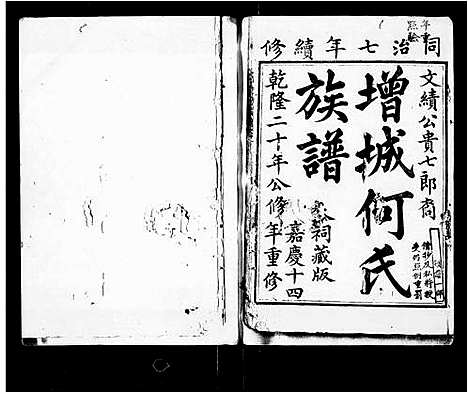 同治七年續修
文績公貴七郎裔
增城何氏
族譜
祠藏版
乾隆二十年公修
嘉慶十四
年重修